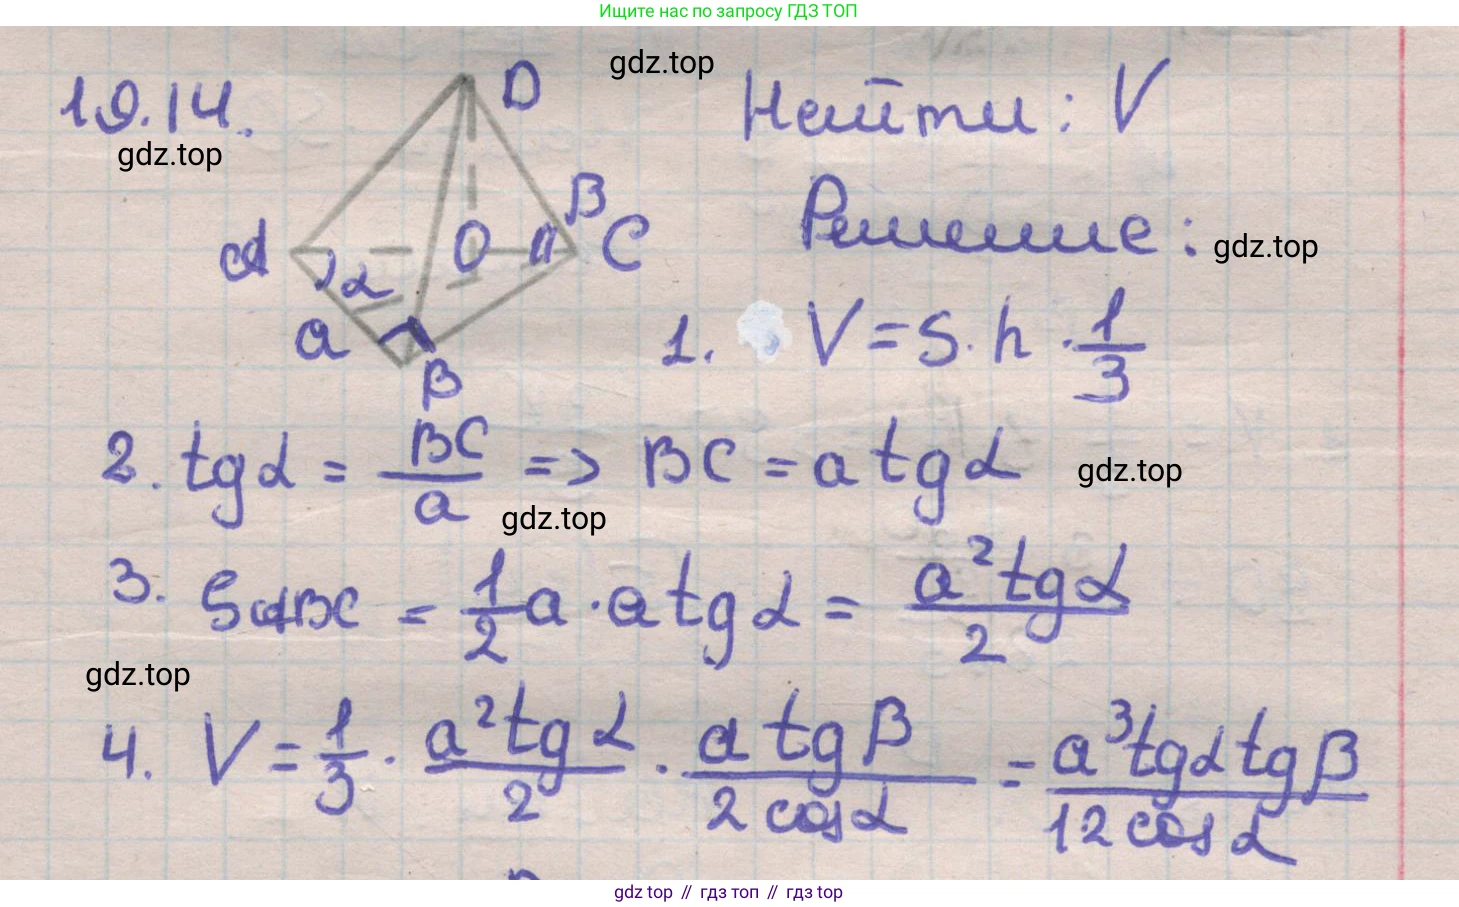 Ищите нас по запросу ГДЗ ТОП
19.14.
gdz.top
D
gdz.top
Найти: V
A
O
β
C
Решение:
gdz.top
α
a
B
1. V = S · h · 1/3
2. tg α = BC/a => BC = a tg α
gdz.top
gdz.top
3. SABC = 1/2 a · a tg α = a² tg α / 2
gdz.top
4. V = 1/3 · a² tg α / 2 · a tg β / 2 cos α = a³ tg α tg β / 12 cos α
gdz top // гдз топ // гдз top